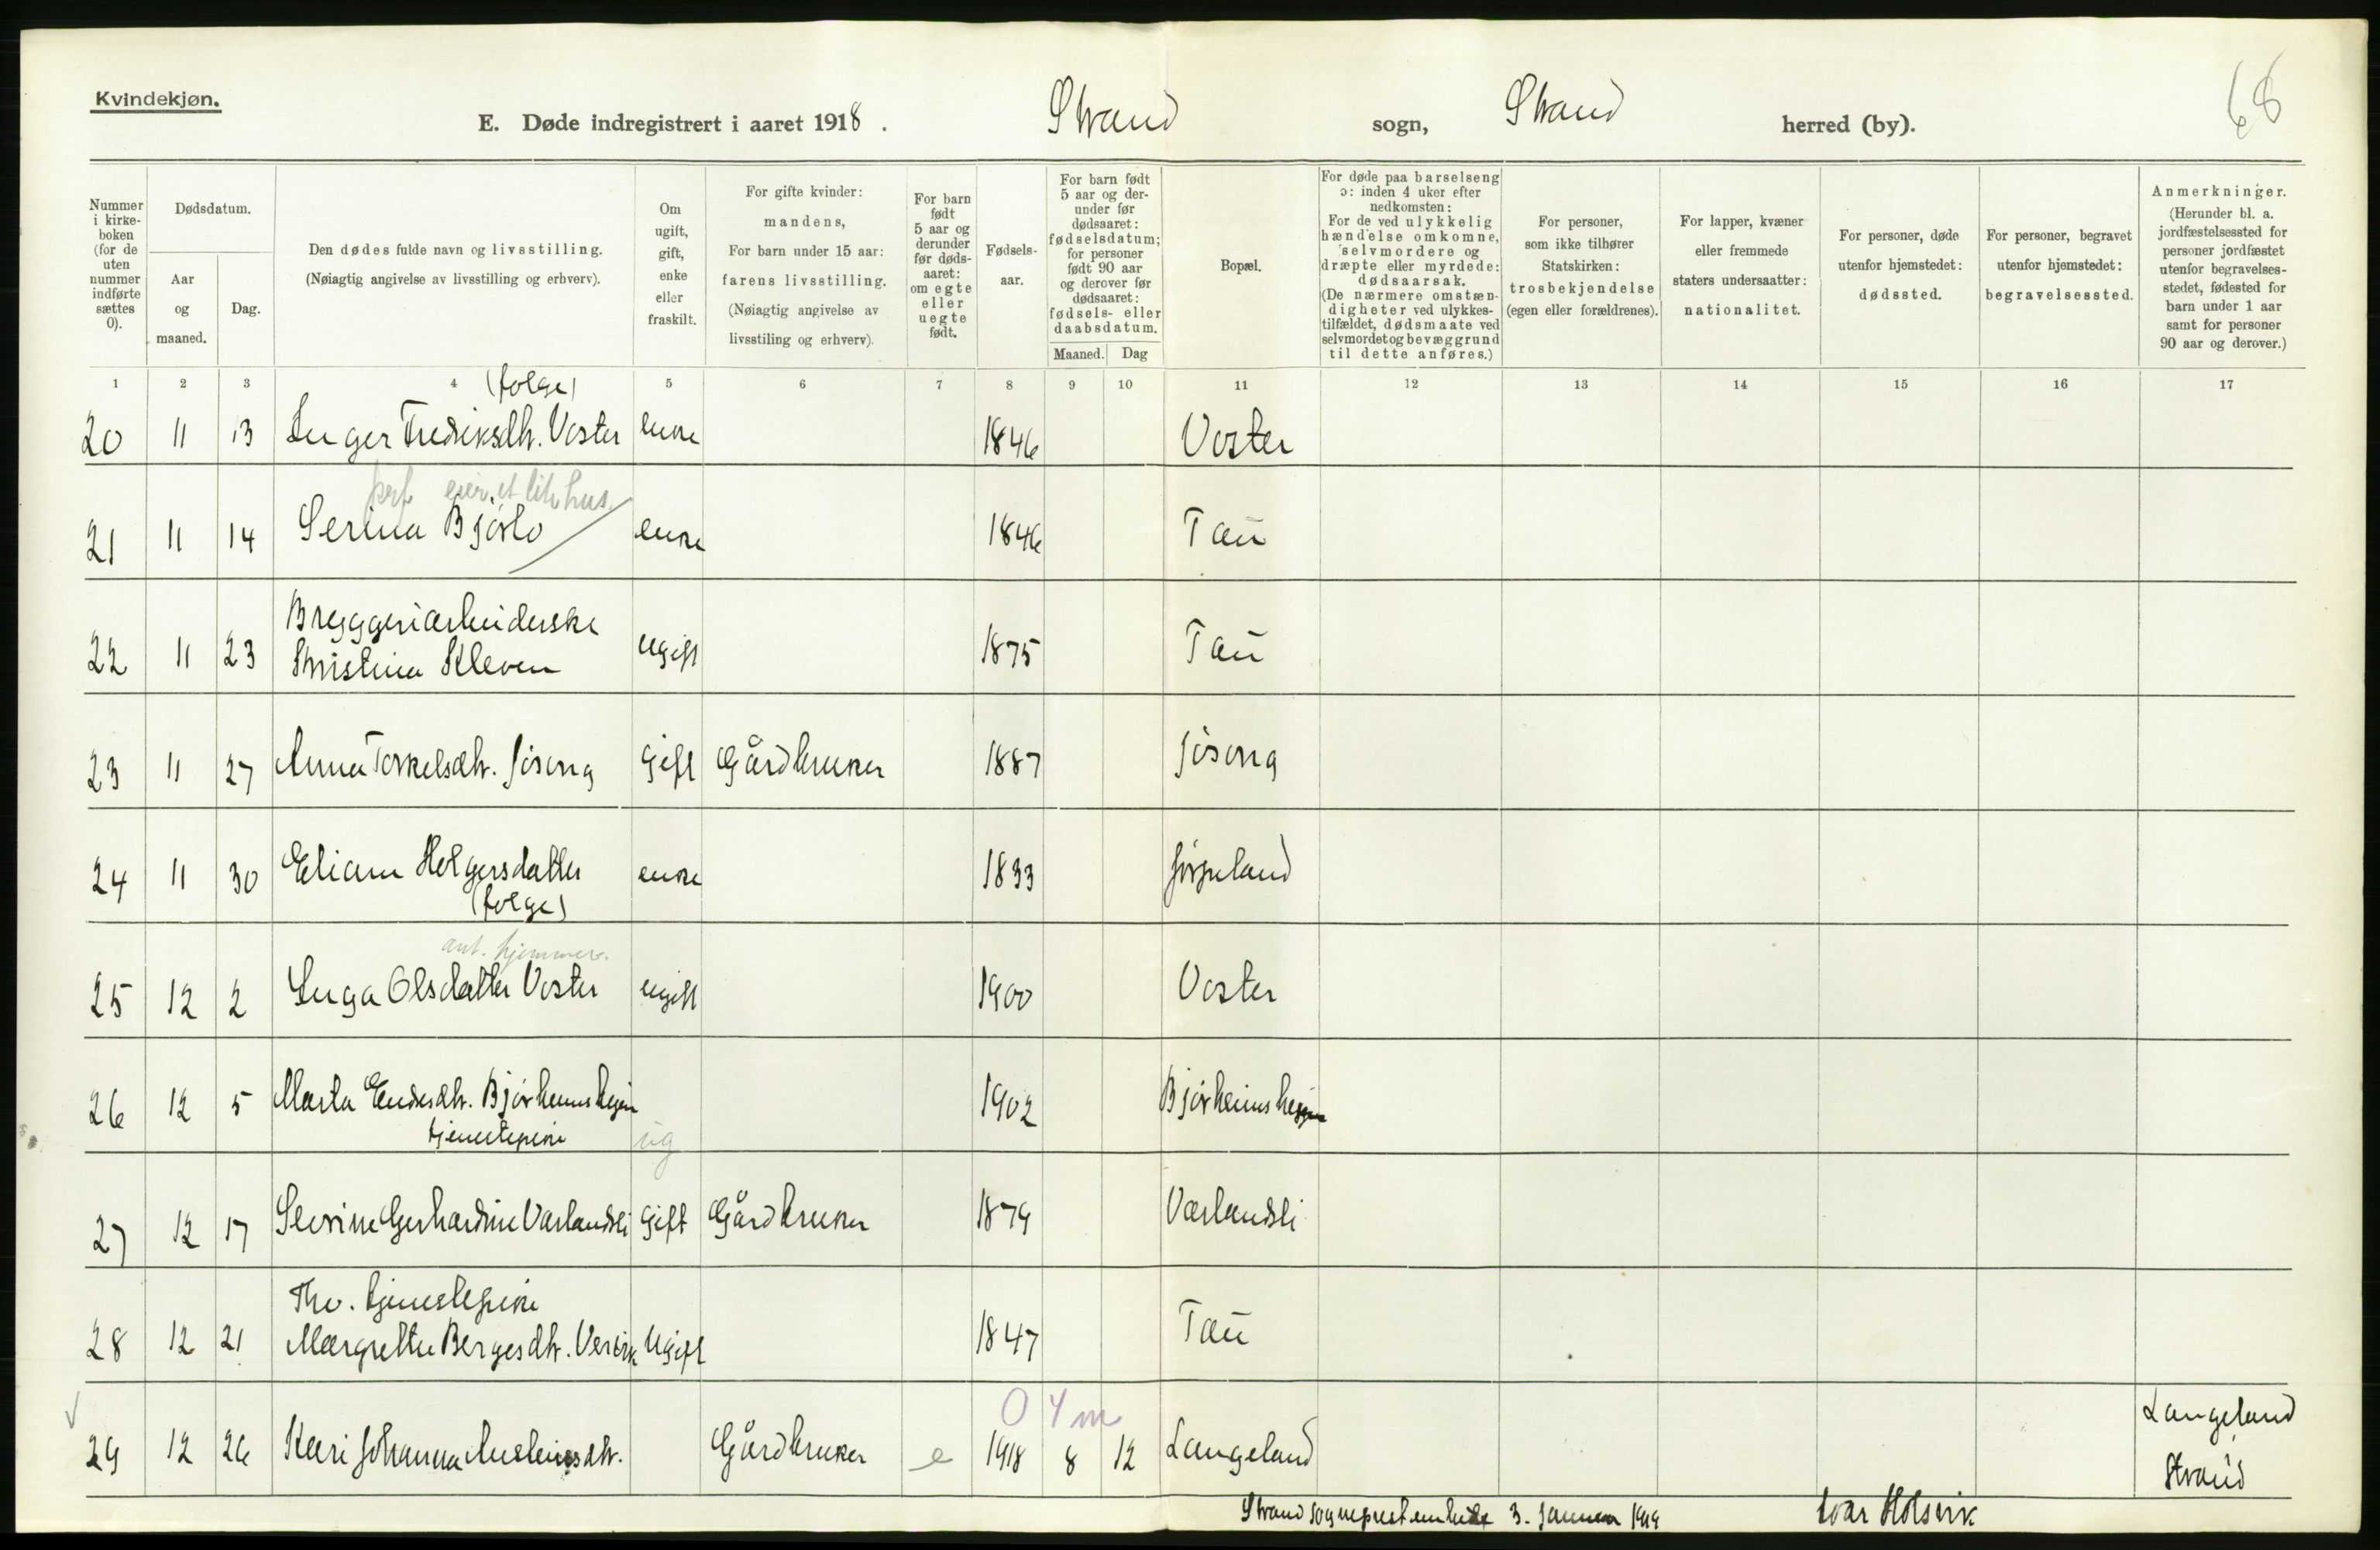 Kvindekjøn.
E. Døde indregistrert i aaret 1918. Strand sogn, Strand herred (by). 68
Nummer i kirke-boken (for de uten nummer indførte sættes 0).
Dødsdatum.
Aar og maaned.
Dag.
Den dødes fulde navn og livsstilling.
(Nøiagtig angivelse av livsstilling og erhverv).
Om ugift, gift, enke eller fraskilt.
For gifte kvinder:
mandens,
For barn under 15 aar:
farens livsstilling.
(Nøiagtig angivelse av
livsstiling og erhverv).
For barn født 5 aar og derunder før døds-aaret: om egte eller uegte født.
Fødsels-aar.
For barn født 5 aar og der-under før dødsaaret: fødselsdatum; for personer født 90 aar og derover før dødsaaret: fødsels- eller daabsdatum.
Maaned. Dag
Bopæl.
For døde paa barselseng ɔ: inden 4 uker efter nedkomsten: For de ved ulykkelig hændelse omkomne, selvmordere og dræpte eller myrdede: dødsaarsak. (De nærmere omstæn-digheter ved ulykkes-tilfældet, dødsmaate ved selvmordet og bevæggrund til dette anføres.)
For personer, som ikke tilhører Statskirken: trosbekjendelse (egen eller forældrenes).
For lapper, kvæner eller fremmede staters undersaatter: nationalitet.
For personer, døde utenfor hjemstedet: dødssted.
For personer, begravet utenfor hjemstedet: begravelsessted.
Anmerkninger.
(Herunder bl. a. jordfæstelsessted for personer jordfæstet utenfor begravelses-stedet, fødested for barn under 1 aar samt for personer 90 aar og derover.)
1 2 3 4 5 6 7 8 9 10 11 12 13 14 15 16 17
(folge)
20 11 13 Inger Frediksdtr. Voster enke 1846 Voster
eier et lite hus.
21 11 14 Serina Bjørlo enke 1846 Tau
Bryggeriarbeiderske
22 11 23 Kristina Kleven ugift 1875 Tau
23 11 27 Anna Torkelsdtr. Jøsong gift Gårdbruker 1887 Jøsong
24 11 30 Eliam Holgersdatter enke 1833 Jørpeland
(folge)
ant. hjemmev.
25 12 2 Inga Olsdatter Voster ugift 1900 Voster
26 12 5 Marta Endresdtr. Bjørheimsheien 1902 Bjørheimsheien
tjenestepike ug
27 12 17 Severine Gerhardine Varlandsli gift Gårdbruker 1879 Varlandsli
Thv. tjenestepike
28 12 21 Margrethe Bergesdtr. Vervik ugift 1847 Tau
0 4 m
29 12 26 Kari Johanna Austeinsdtr. Gårdbruker e 1918 8 12 Langeland Langeland
Strand
Strand sogneprestembede 3. januar 1919 Ivar Holsvik